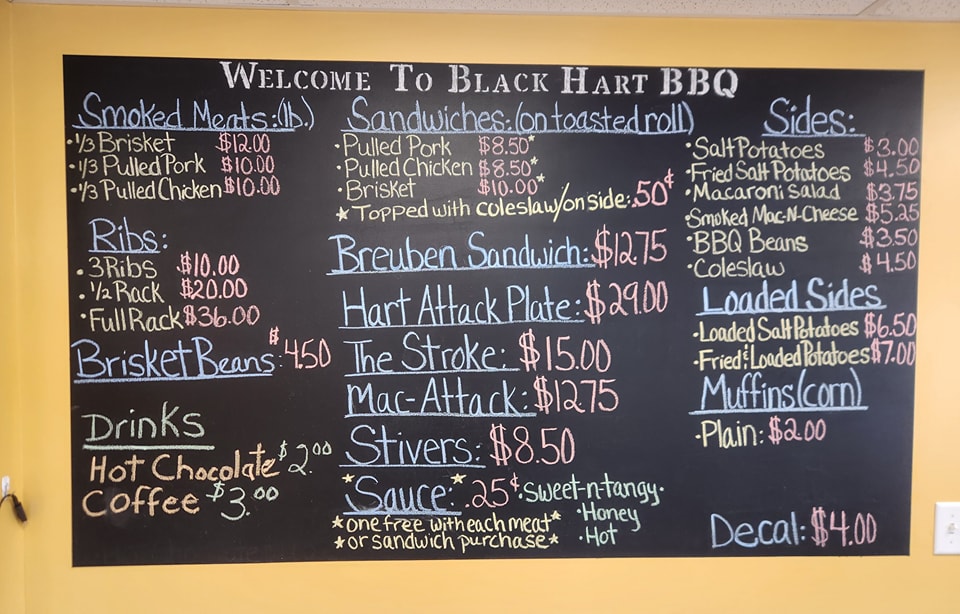 Welcome To Black Hart BBQ
Smoked Meats:(lb.)
·1/3 Brisket $12.00
·1/3 Pulled Pork $10.00
·1/3 Pulled Chicken $10.00
Ribs:
·3 Ribs $10.00
·1/2 Rack $20.00
·Full Rack $36.00
Brisket Beans: $4.50
Drinks
Hot Chocolate $2.00
Coffee $3.00
Sandwiches:(on toasted roll)
·Pulled Pork $8.50*
·Pulled Chicken $8.50*
·Brisket $10.00*
*Topped with coleslaw/on side:.50¢
Breuben Sandwich: $12.75
Hart Attack Plate: $29.00
The Stroke: $15.00
Mac-Attack: $12.75
Stivers: $8.50
*Sauce:* .25¢ ·Sweet-n-tangy·
·Honey
·Hot
*one free with each meat*
*or sandwich purchase*
Sides:
·Salt Potatoes $3.00
·Fried Salt Potatoes $4.50
·Macaroni salad $3.75
·Smoked Mac-N-Cheese $5.25
·BBQ Beans $3.50
·Coleslaw $4.50
Loaded Sides
·Loaded Salt Potatoes $6.50
·Fried & Loaded Potatoes $7.00
Muffins(corn)
·Plain: $2.00
Decal: $4.00